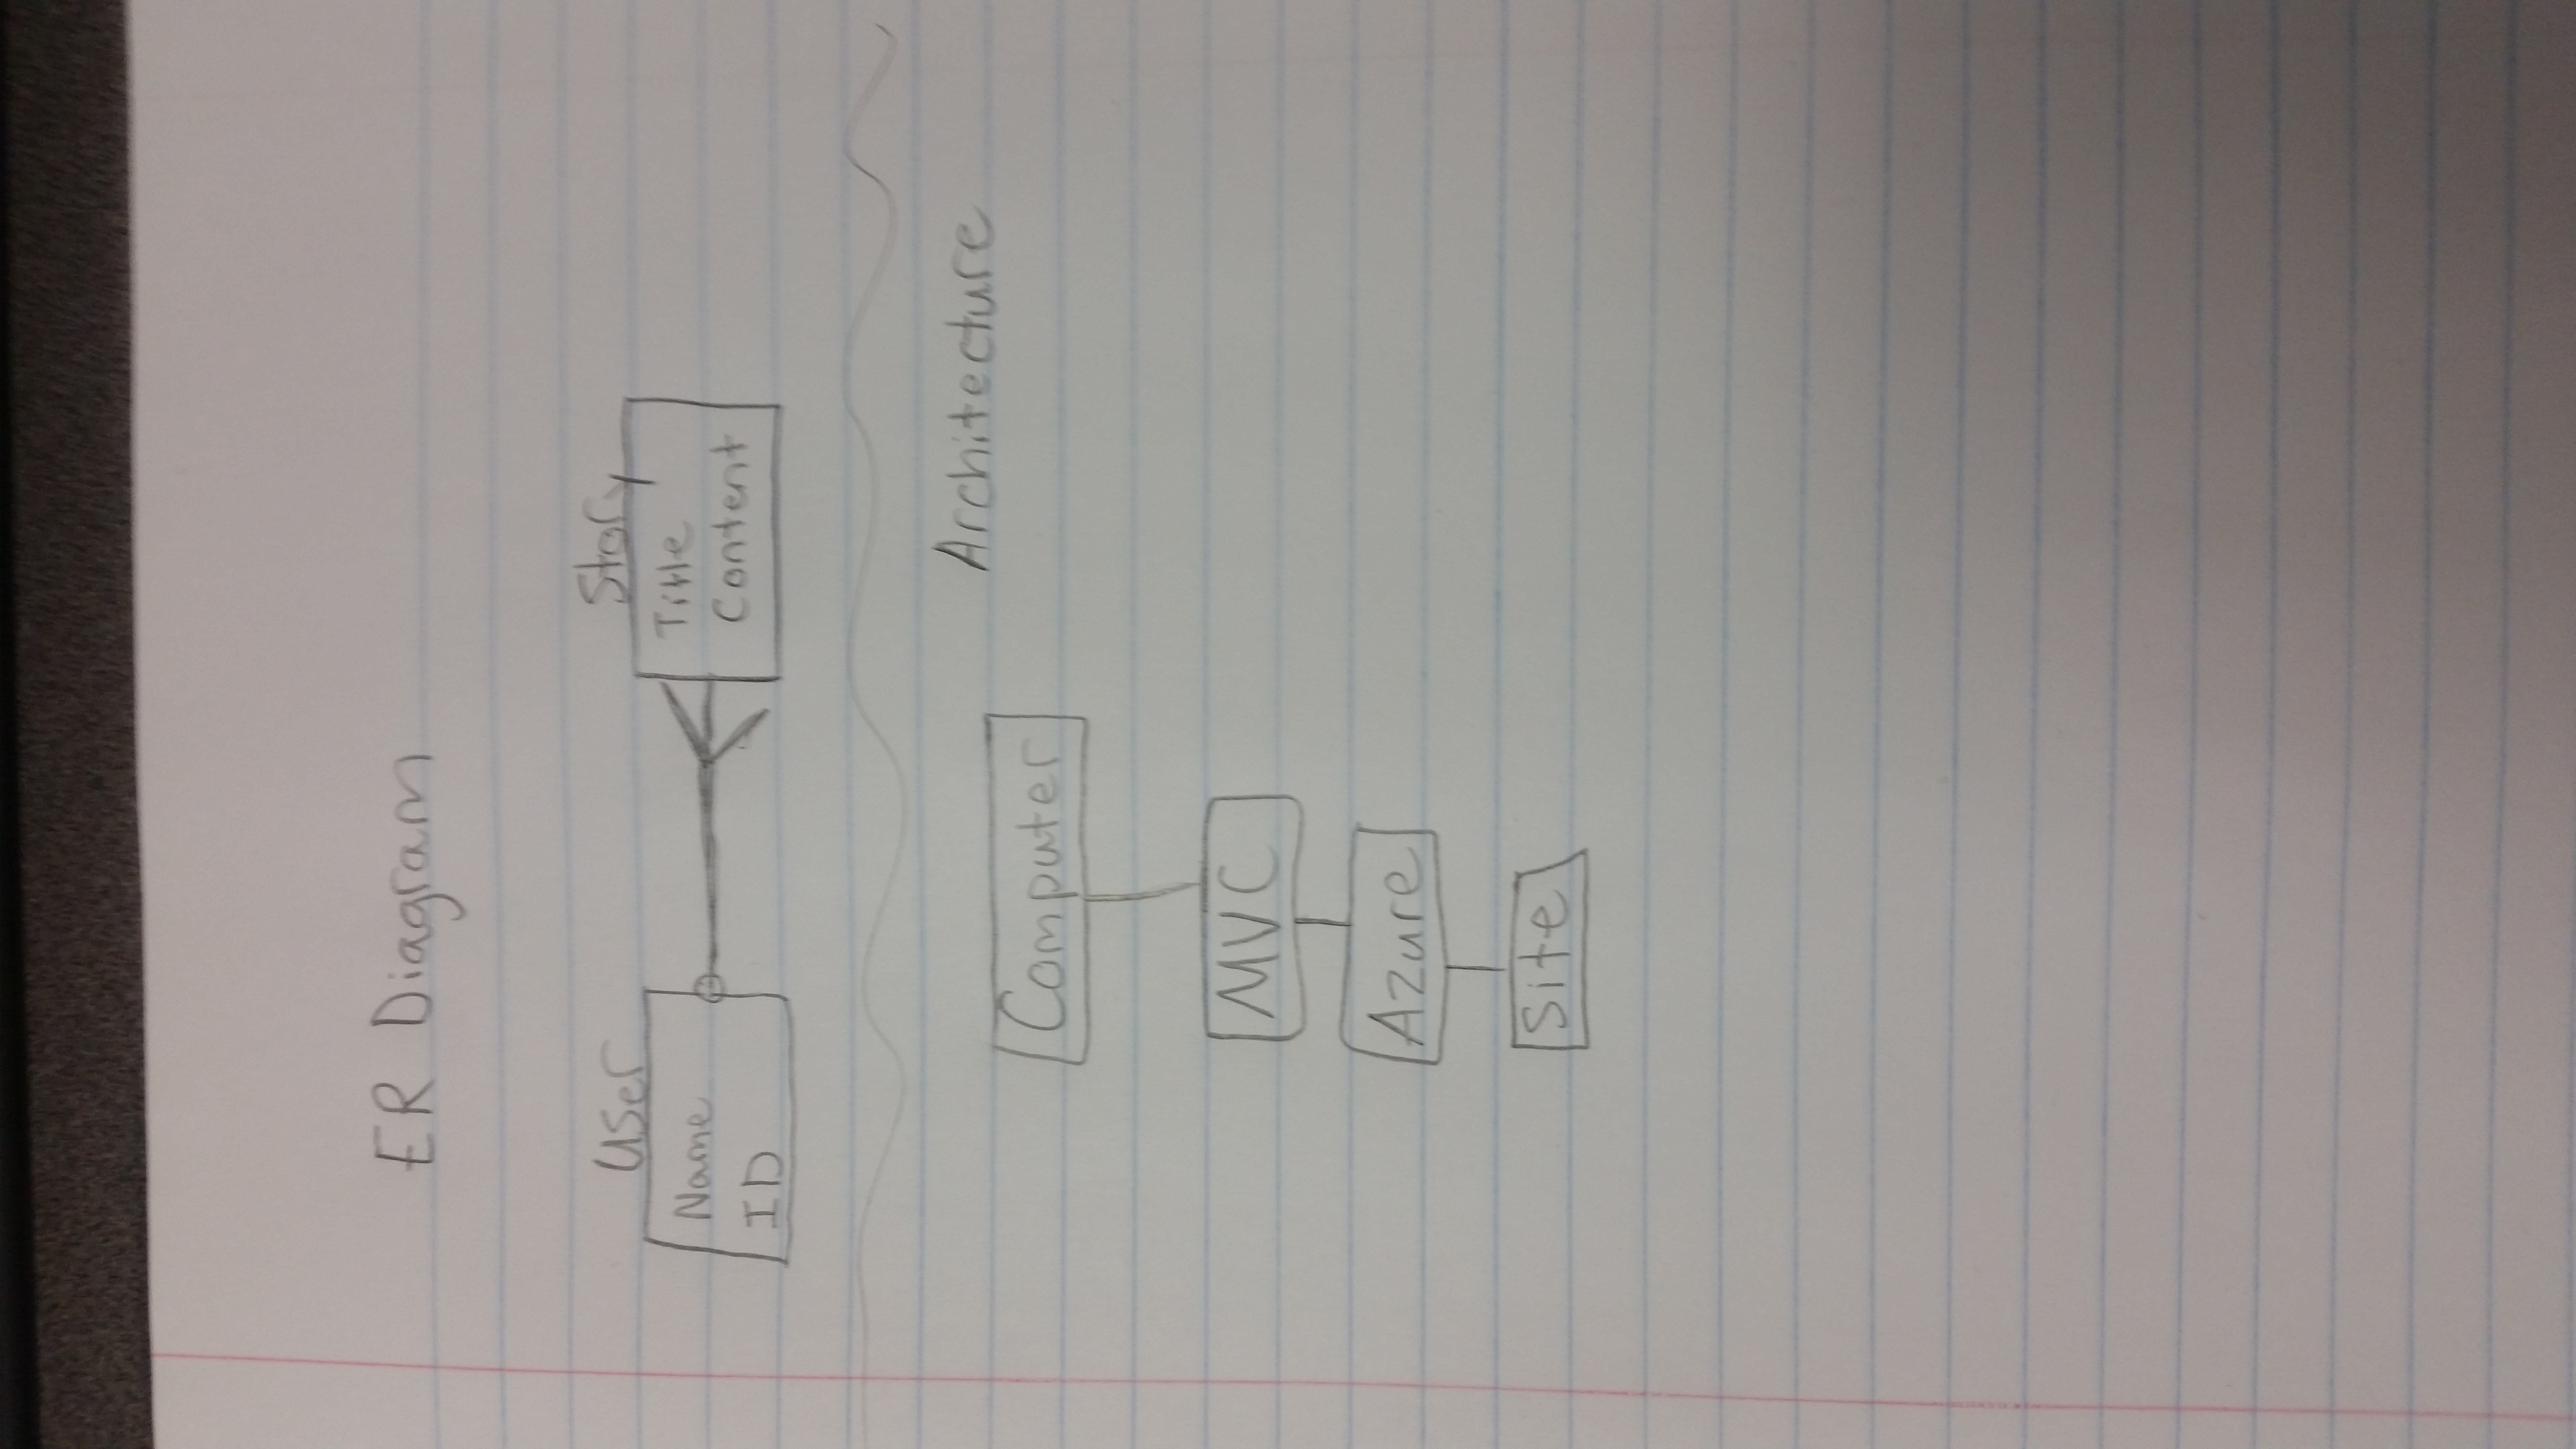 ER Diagram
User
Name
ID
Story
Title
Content
Architecture
Computer
MVC
Azure
Site